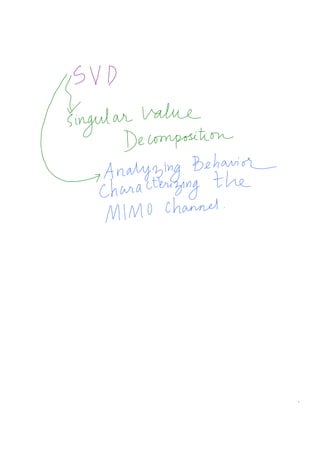 SVD
Singular Value
Decomposition
Analyzing Behavior
Characterizing the
MIMO Channel.